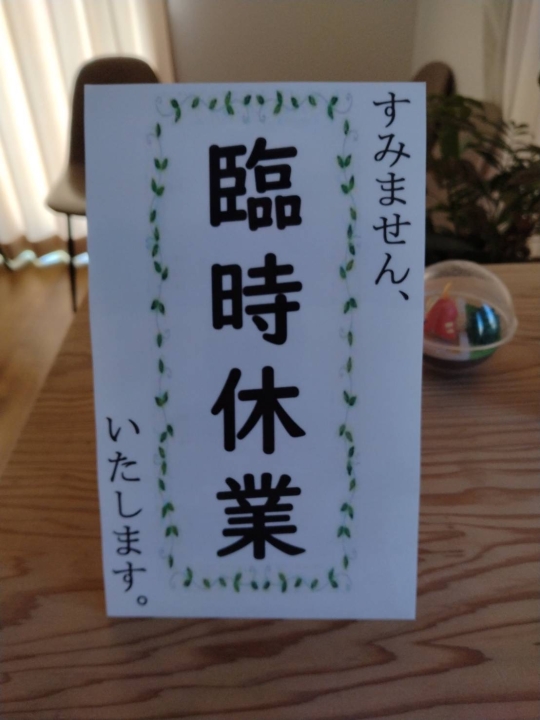 すみません、
臨時休業
いたします。